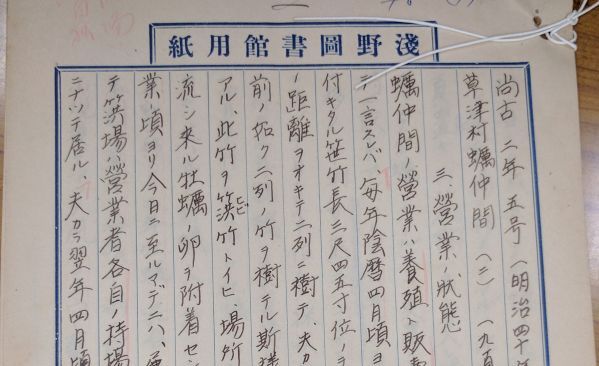 淺野圖書館用紙
尚古 二年五号(明治四十
草津村蠣仲間(二) (一九頁
三 營業ノ狀態
蠣仲間ノ營業ハ養殖ト販
ニ一言スレバ毎年陰暦四月頃ヨ
付キタル笹竹長三尺四五寸位ノ
ノ距離ヲオキテ二列ニ樹テ、夫カ
前ノ如ク二列ノ竹ヲ樹テル斯様
アル、此竹ヲ篊竹トイヒ、場所
流シ来ル牡蠣ノ卵ヲ附着セン
業ノ頃ヨリ今日ニ至ルマデニハ、
テ篊場ハ營業者各自ノ持場
ニナツテ居ル、夫カラ翌年四月頃